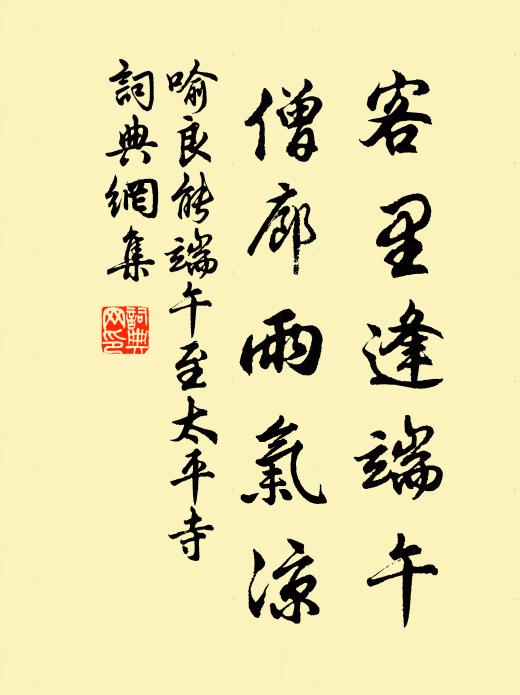 客里逢端午
僧廊雨氣涼
喻良能端午至太平寺
詞典網集
詞典网印